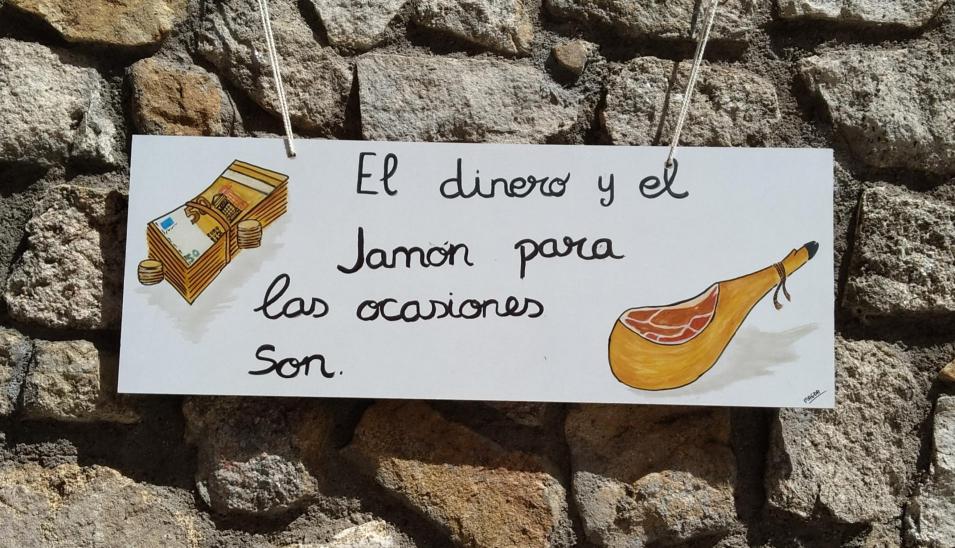 El dinero y el
Jamón para
las ocasiones
Son.
50